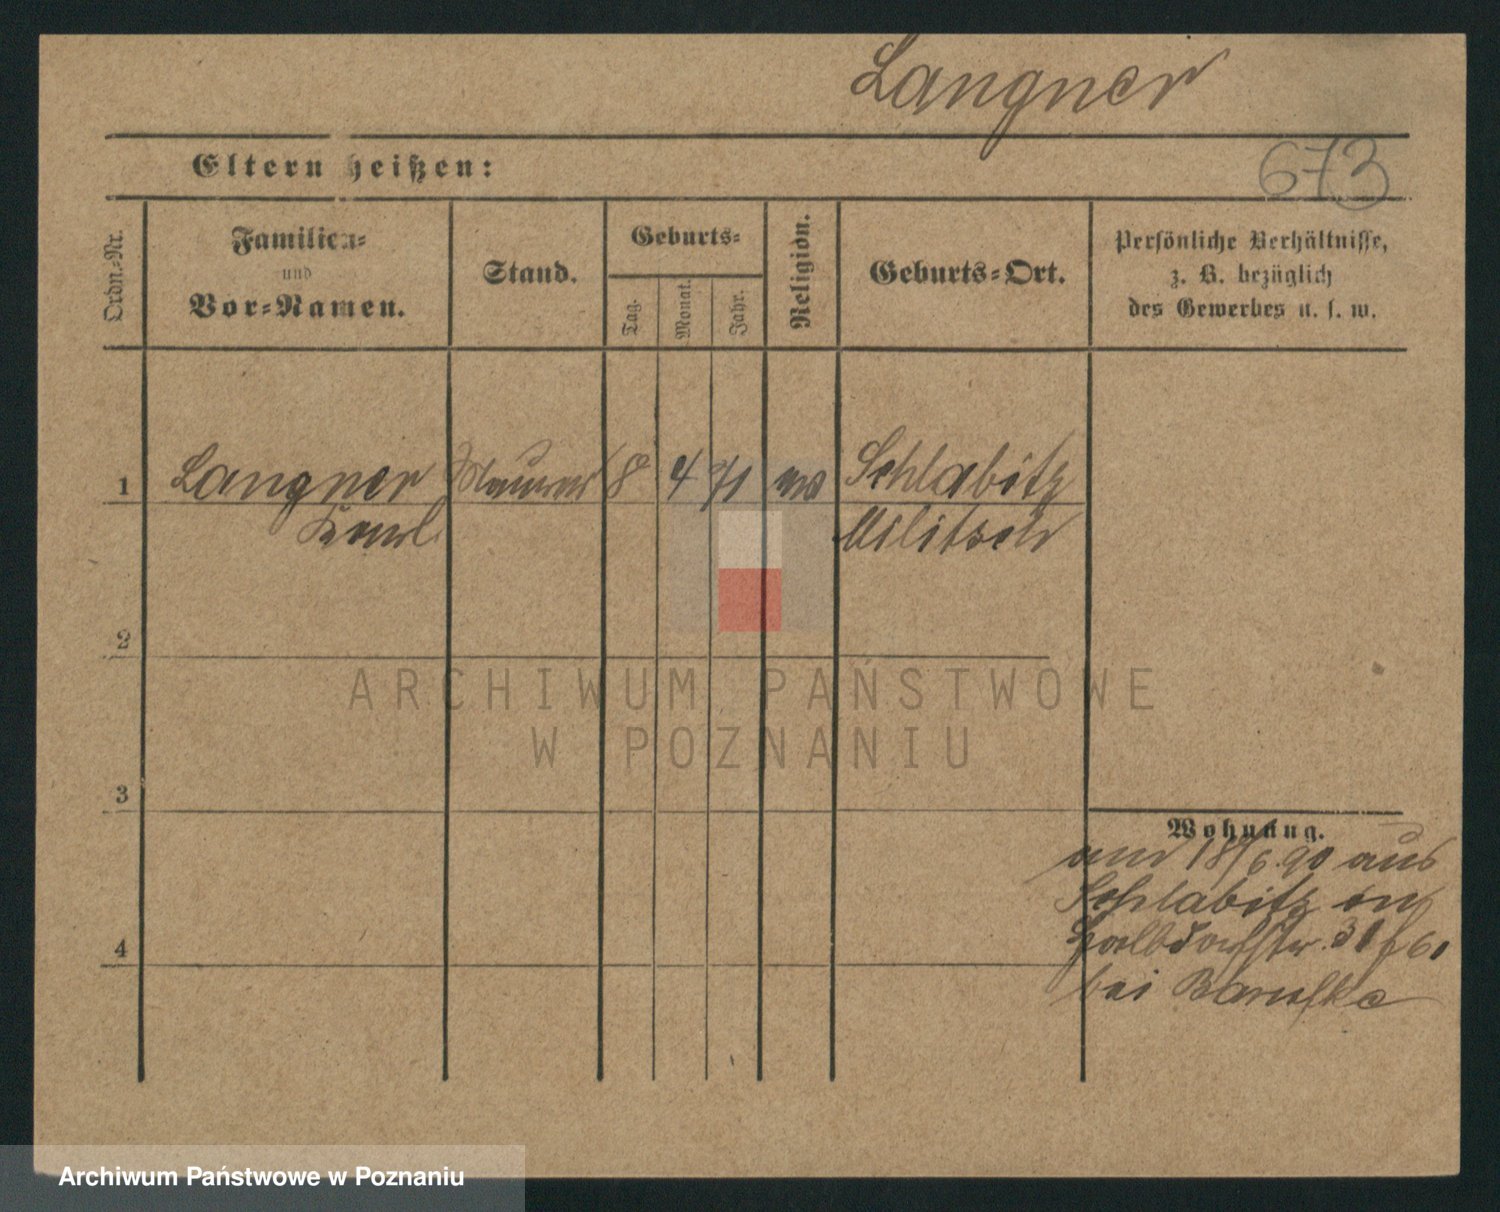 Langner
Eltern heißen:
673
Ordn.-Nr.
Familien-
und
Vor-Namen.
Stand.
Geburts-
Tag.
Monat.
Jahr.
Religion.
Geburts-Ort.
Persönliche Verhältnisse,
z. B. bezüglich
des Gewerbes u. s. w.
1 Langner Maurer 8 4 71 ev Schlabitz
Karl Militsch
2
3
4
Wohnung.
18/6 90 aus
Schlabitz
Halbdorfstr. 31
bei
ARCHIWUM PAŃSTWOWE
W POZNANIU
Archiwum Państwowe w Poznaniu